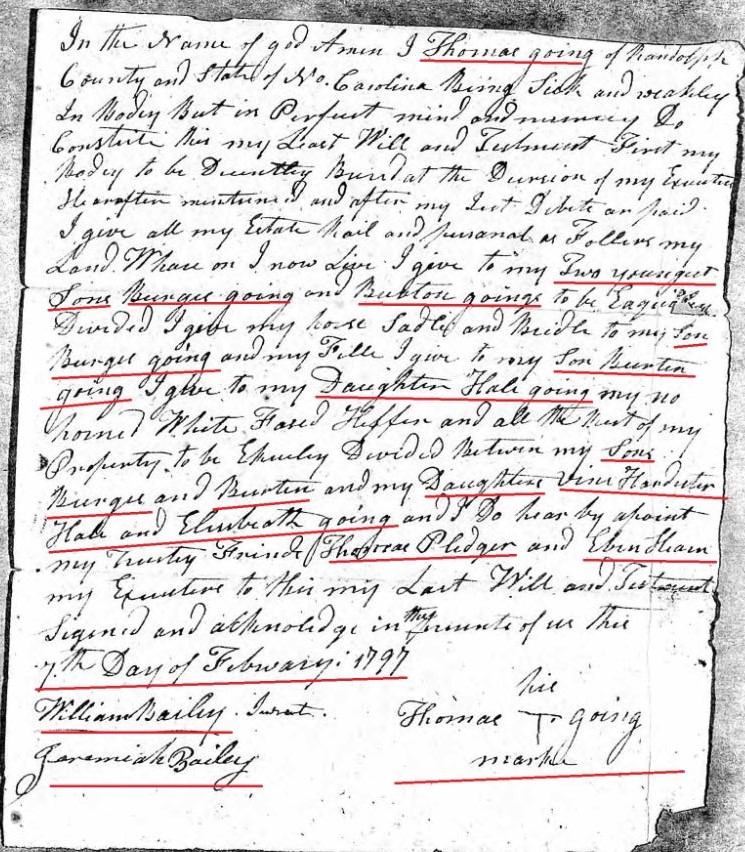 In the Name of god Amen I Thomas going of Randolph
County and State of No. Carolina Being Sick and weakley
In Bodey But in Perfect mind and memory Do
Constitte this my Last Will and Testment First my
Bodey to be Buried at the of my
Hearafter mentioned and after my Just Debts ar paid
I give all my Estate Rail and personal as Follows my
Land Whare on I now Live I give to my Two youngest
Sons Burges going and Burton goings to be
Divided I give my horse Sadle and Bridle to my Son
Burges going and my Fille I give to my Son Burten
going I give to my Daughter Hale going my no
horned White Fased Heffer and all the Rest of my
Property to be Divided Betwen my Sons
Burges and Burten and my Daughters Vine
Hale and going and I Do hear by apoint
my Trustey Friends Thomas Pledger and Eben Hearn
my to this my Last Will and
Signed and acknoledge in the of us this
7th Day of February 1797
William Bailey Jurat.
his
Thomas T going
Jeremiah Bailey
marke